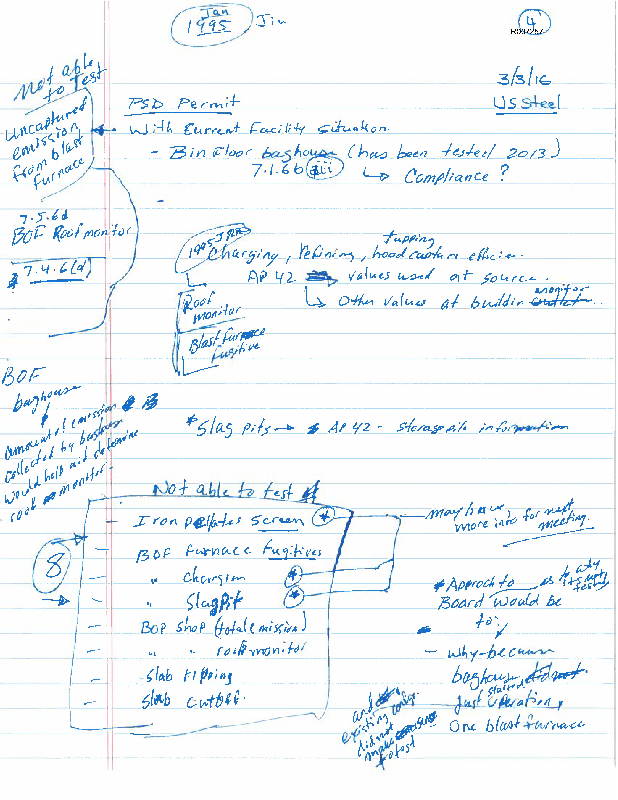 Jan
1995
Jim
4
3/3/16
US Steel
Not able
to Test
Uncaptured
emission
from blast
furnace
PSD Permit
With Current Facility Situation.
- Bin Floor baghouse (has been tested 2013)
7.1.6b iii
Compliance?
7.5.6d
BOF Roof monitor
7.4.6(d)
1995
tapping
Charging, refining, hood capture
AP 42 values used at source.
Other values at monitor
Roof
monitor
Blast furnace
fugitive
BOF
baghouse
amount of emission
collected by baghouse
would help aid determine
roof monitor.
* Slag pits → AP 42 - storage pile information
Not able to test
- Iron pellates screen *
8
- BOF furnace fugitives
- " Chargin *
- " Slagpit *
- BOP Shop (total emission)
- " " roof monitor
- Slab ripping
- Slab cutoff.
may have
more info for next
meeting.
* Approch to as to why
Board would be
to:
- why - because
baghouse
started
Just operation,
One blast furnace
and
existing
did not
make
to test